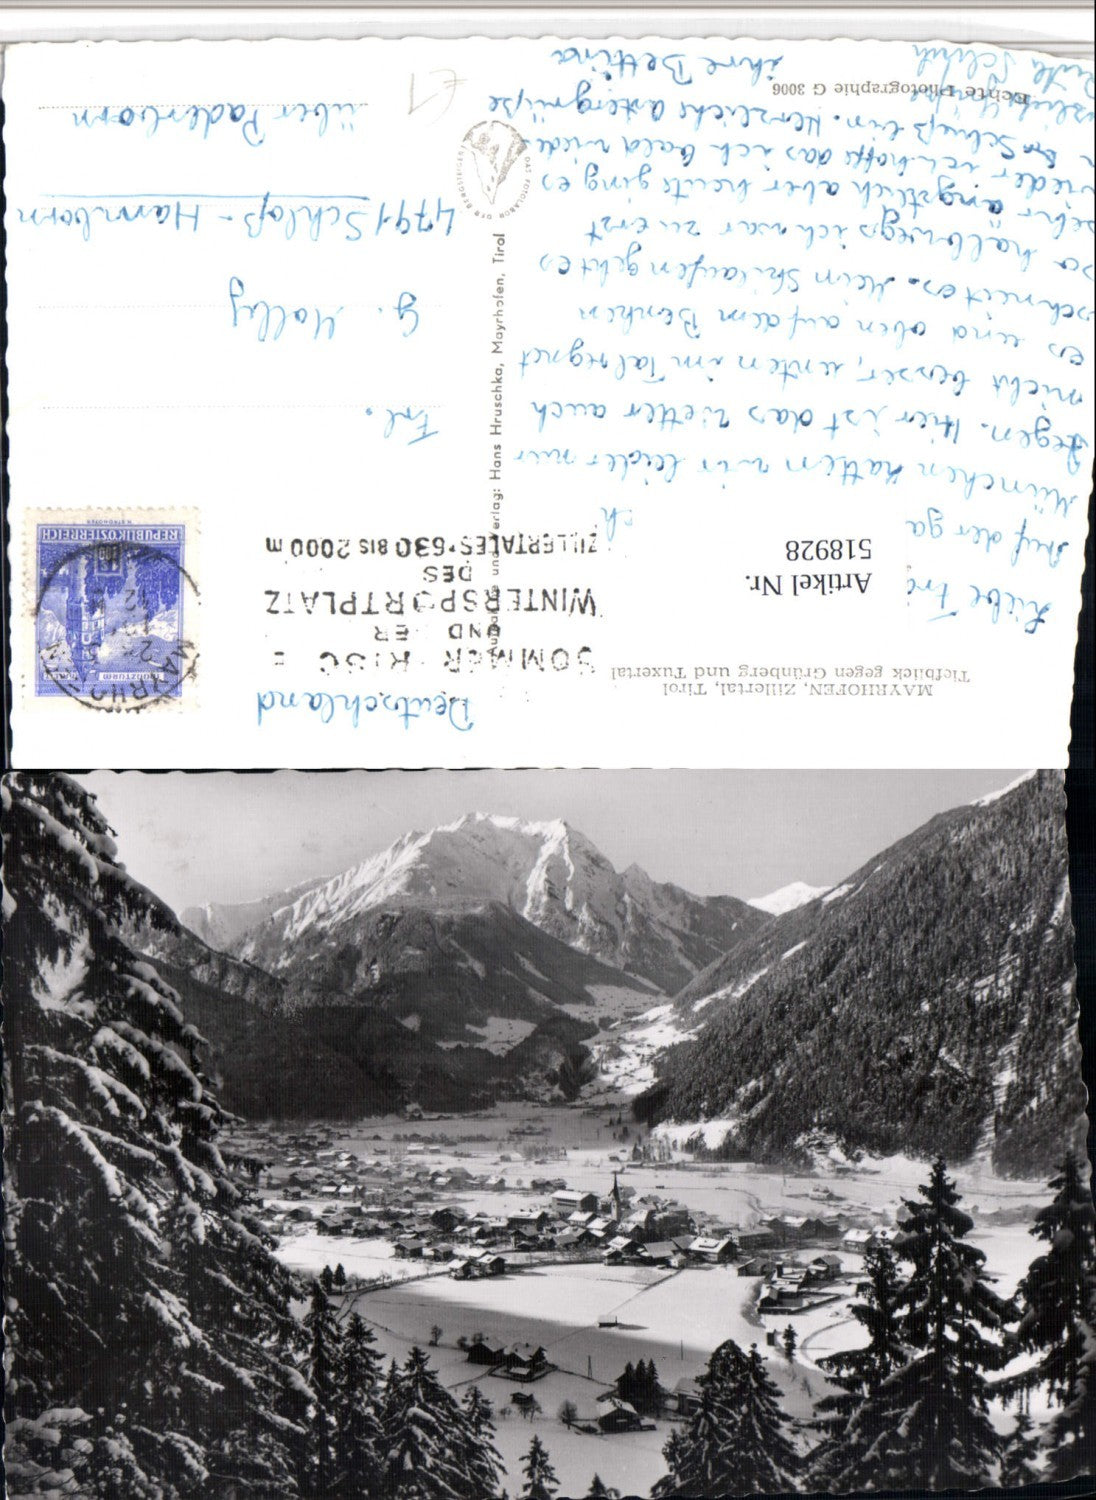 MAYRHOFEN, Zillertal, Tirol
Tiefblick gegen Grünberg und Tuxertal
Artikel Nr.
518928
Liebe
Auf der
München hatten wir leider nur
Regen. Hier ist das Wetter auch
nicht besser, unten im Tal regnet
es und oben auf dem Penken
schneit es. Mein Skilaufen geht es
so halbwegs ich war zu erst
sehr ängstlich aber heute ging es
wieder ich hoffe das ich bald wieder
Schieß bin. Herzliche Ostergrüße
ihre Bettina
Echte Photographie G 3006
DAS FOTOLABOR DER BERGSTEIGER
erlag: Hans Hruschka, Mayrhofen, Tirol
SOMMER
UND DER
WINTERSPORTPLATZ
DES
ZILLERTALES·630 BIS 2000 m
REPUBLIK ÖSTERREICH
MÜNZTURM
MAYRHOFEN
Frl.
G. Molly
4791 Schloß-Hamborn
über Paderborn
Deutschland
€1